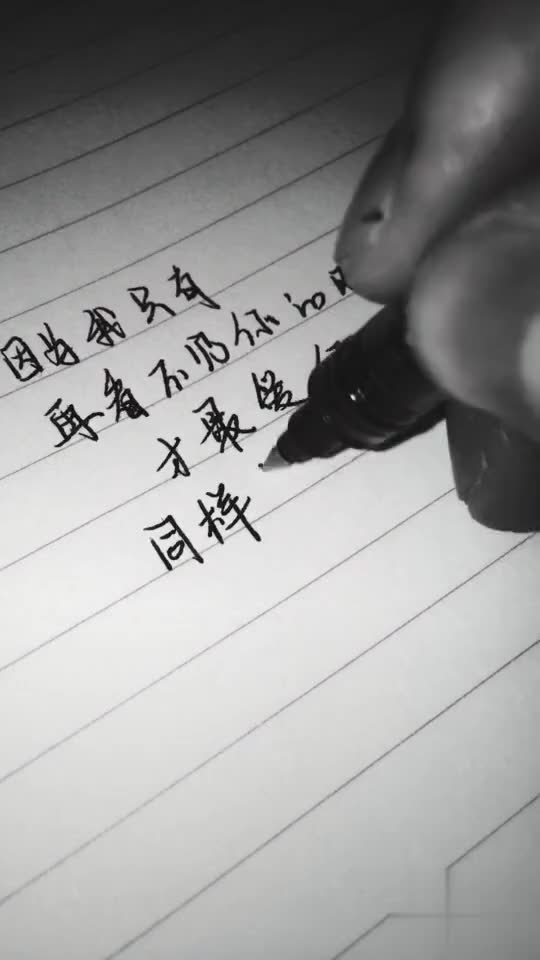 因为我只有
再看不见你的
才最
同样